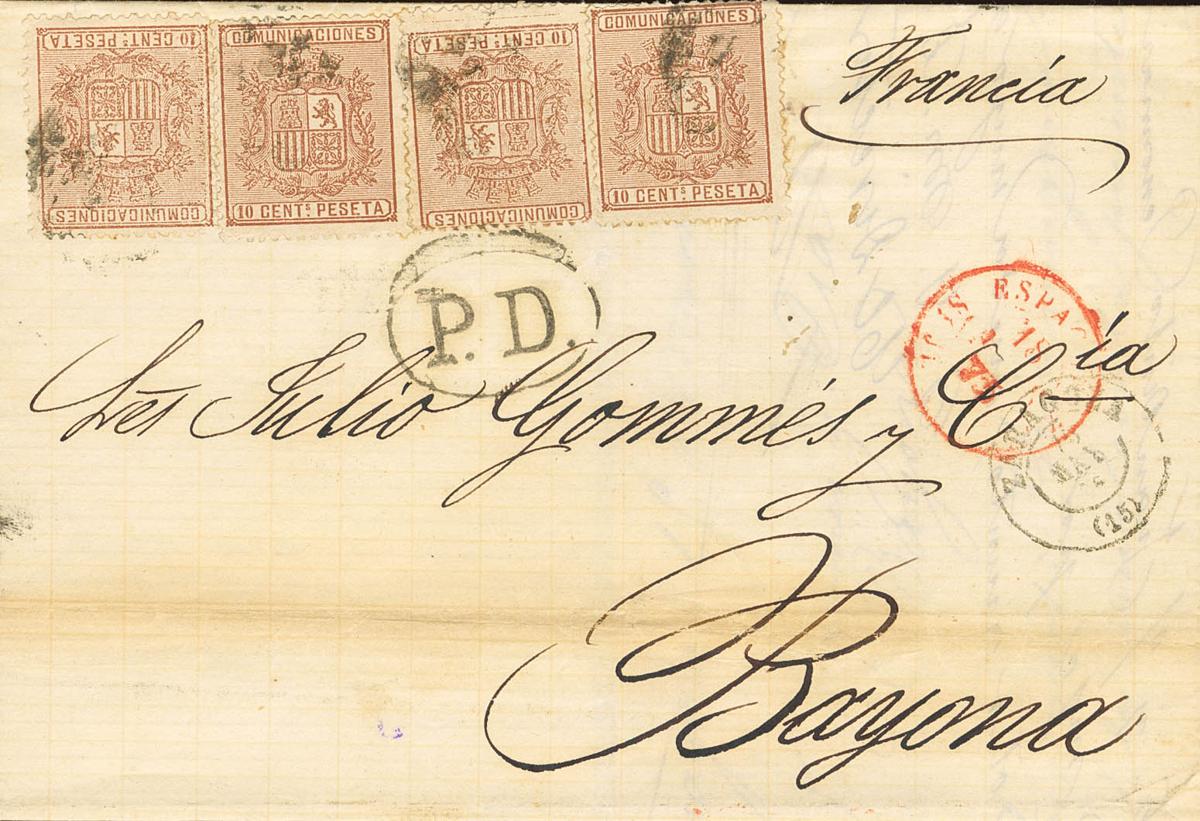 10 CENT.s PESETA
COMUNICACIONES
COMUNICACIONES
10 CENT.s PESETA
10 CENT.s PESETA
COMUNICACIONES
COMUNICACIONES
10 CENT.s PESETA
Francia
P. D.
ESPAG
Sres Julio Gommés y Cía
ZARAGOZA
MAY
(15)
Bayona